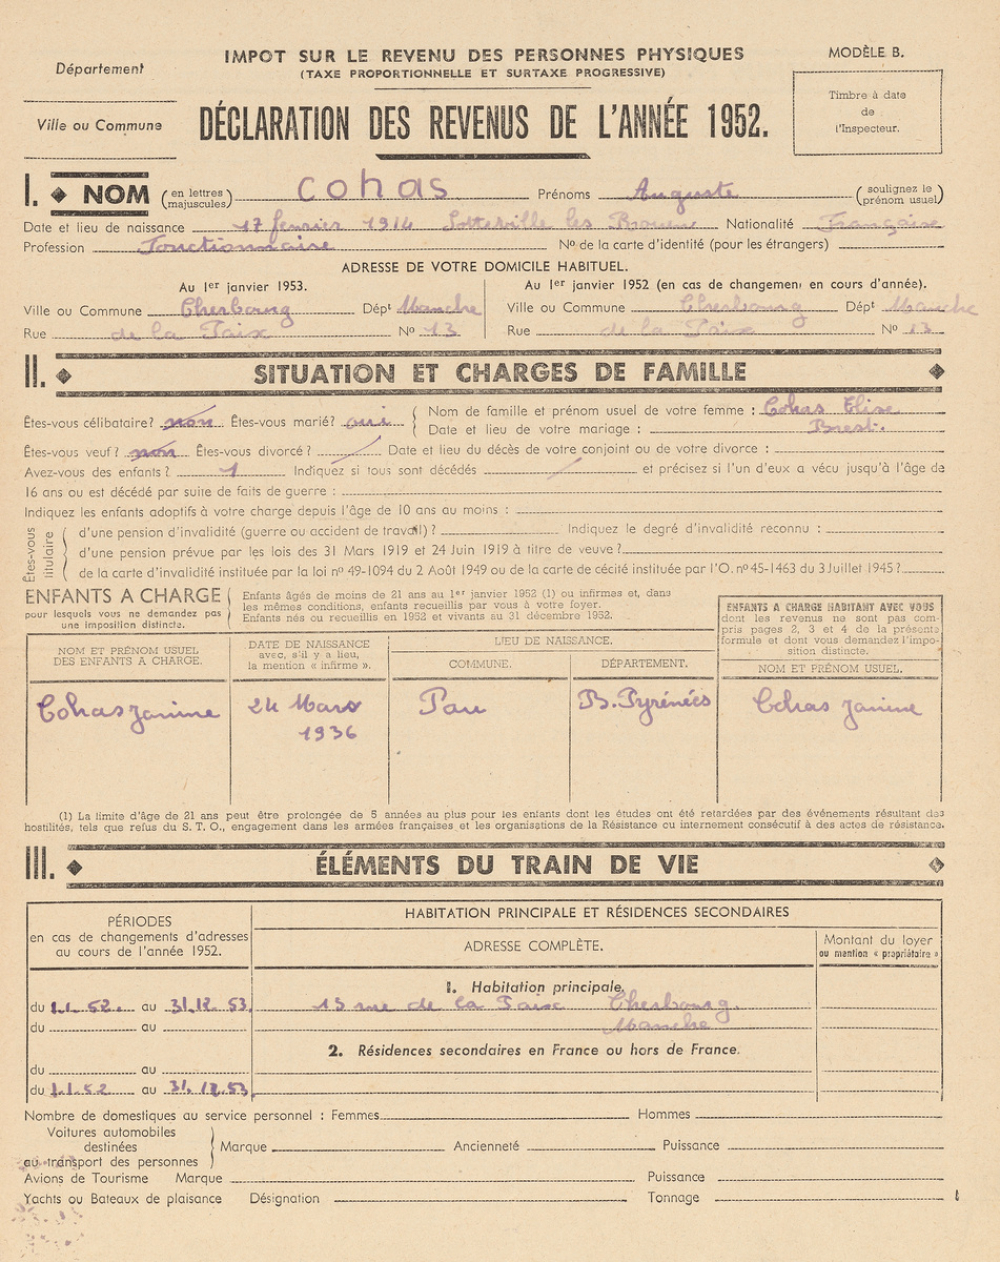 Département
IMPOT SUR LE REVENU DES PERSONNES PHYSIQUES
(TAXE PROPORTIONNELLE ET SURTAXE PROGRESSIVE)
MODÈLE B.
Ville ou Commune
DÉCLARATION DES REVENUS DE L'ANNÉE 1952.
Timbre à date
de
l'Inspecteur.
I. ◆ NOM (en lettres majuscules) Cohas Prénoms Auguste (soulignez le prénom usuel)
Date et lieu de naissance 17 février 1914 Sotteville les Rouen Nationalité Française
Profession Fonctionnaire Nº de la carte d'identité (pour les étrangers)
ADRESSE DE VOTRE DOMICILE HABITUEL.
Au 1er janvier 1953.
Ville ou Commune Cherbourg Dépt Manche
Rue de la Paix Nº 13
Au 1er janvier 1952 (en cas de changement en cours d'année).
Ville ou Commune Cherbourg Dépt Manche
Rue de la Paix Nº 13
II. ◆ SITUATION ET CHARGES DE FAMILLE ◆
Êtes-vous célibataire? non Êtes-vous marié? oui
Nom de famille et prénom usuel de votre femme : Cohas Elise
Date et lieu de votre mariage : Brest.
Êtes-vous veuf? non Êtes-vous divorcé? / Date et lieu du décès de votre conjoint ou de votre divorce :
Avez-vous des enfants? 1 Indiquez si tous sont décédés / et précisez si l'un d'eux a vécu jusqu'à l'âge de
16 ans ou est décédé par suite de faits de guerre :
Indiquez les enfants adoptifs à votre charge depuis l'âge de 10 ans au moins :
Êtes-vous titulaire
d'une pension d'invalidité (guerre ou accident de travail) ? Indiquez le degré d'invalidité reconnu :
d'une pension prévue par les lois des 31 Mars 1919 et 24 Juin 1919 à titre de veuve?
de la carte d'invalidité instituée par la loi nº 49-1094 du 2 Août 1949 ou de la carte de cécité instituée par l'O. nº 45-1463 du 3 Juillet 1945 ?
ENFANTS A CHARGE
pour lesquels vous ne demandez pas
une imposition distincte.
Enfants âgés de moins de 21 ans au 1er janvier 1952 (1) ou infirmes et, dans
les mêmes conditions, enfants recueillis par vous à votre foyer.
Enfants nés ou recueillis en 1952 et vivants au 31 décembre 1952.
ENFANTS A CHARGE HABITANT AVEC VOUS
dont les revenus ne sont pas com-
pris pages 2, 3 et 4 de la présente
formule et dont vous demandez l'impo-
sition distincte.
NOM ET PRÉNOM USUEL
DES ENFANTS A CHARGE.
DATE DE NAISSANCE
avec, s'il y a lieu,
la mention « infirme ».
LIEU DE NAISSANCE.
COMMUNE. DÉPARTEMENT.
NOM ET PRÉNOM USUEL.
Cohas Janine 24 Mars Pau B. Pyrénées Cohas Janine
1936
(1) La limite d'âge de 21 ans peut être prolongée de 5 années au plus pour les enfants dont les études ont été retardées par des événements résultant des
hostilités, tels que refus du S. T. O., engagement dans les armées françaises et les organisations de la Résistance ou internement consécutif à des actes de résistance.
III. ◆ ÉLÉMENTS DU TRAIN DE VIE ◆
PÉRIODES
en cas de changements d'adresses
au cours de l'année 1952.
HABITATION PRINCIPALE ET RÉSIDENCES SECONDAIRES
ADRESSE COMPLÈTE.
Montant du loyer
ou mention « propriétaire »
1. Habitation principale.
du 1.1.52. au 31.12.53. 13 rue de la Paix Cherbourg.
du au Manche
2. Résidences secondaires en France ou hors de France.
du au
du 1.1.52 au 31.12.53.
Nombre de domestiques au service personnel : Femmes Hommes
Voitures automobiles
destinées
au transport des personnes
Marque Ancienneté Puissance
Avions de Tourisme Marque Puissance
Yachts ou Bateaux de plaisance Désignation Tonnage